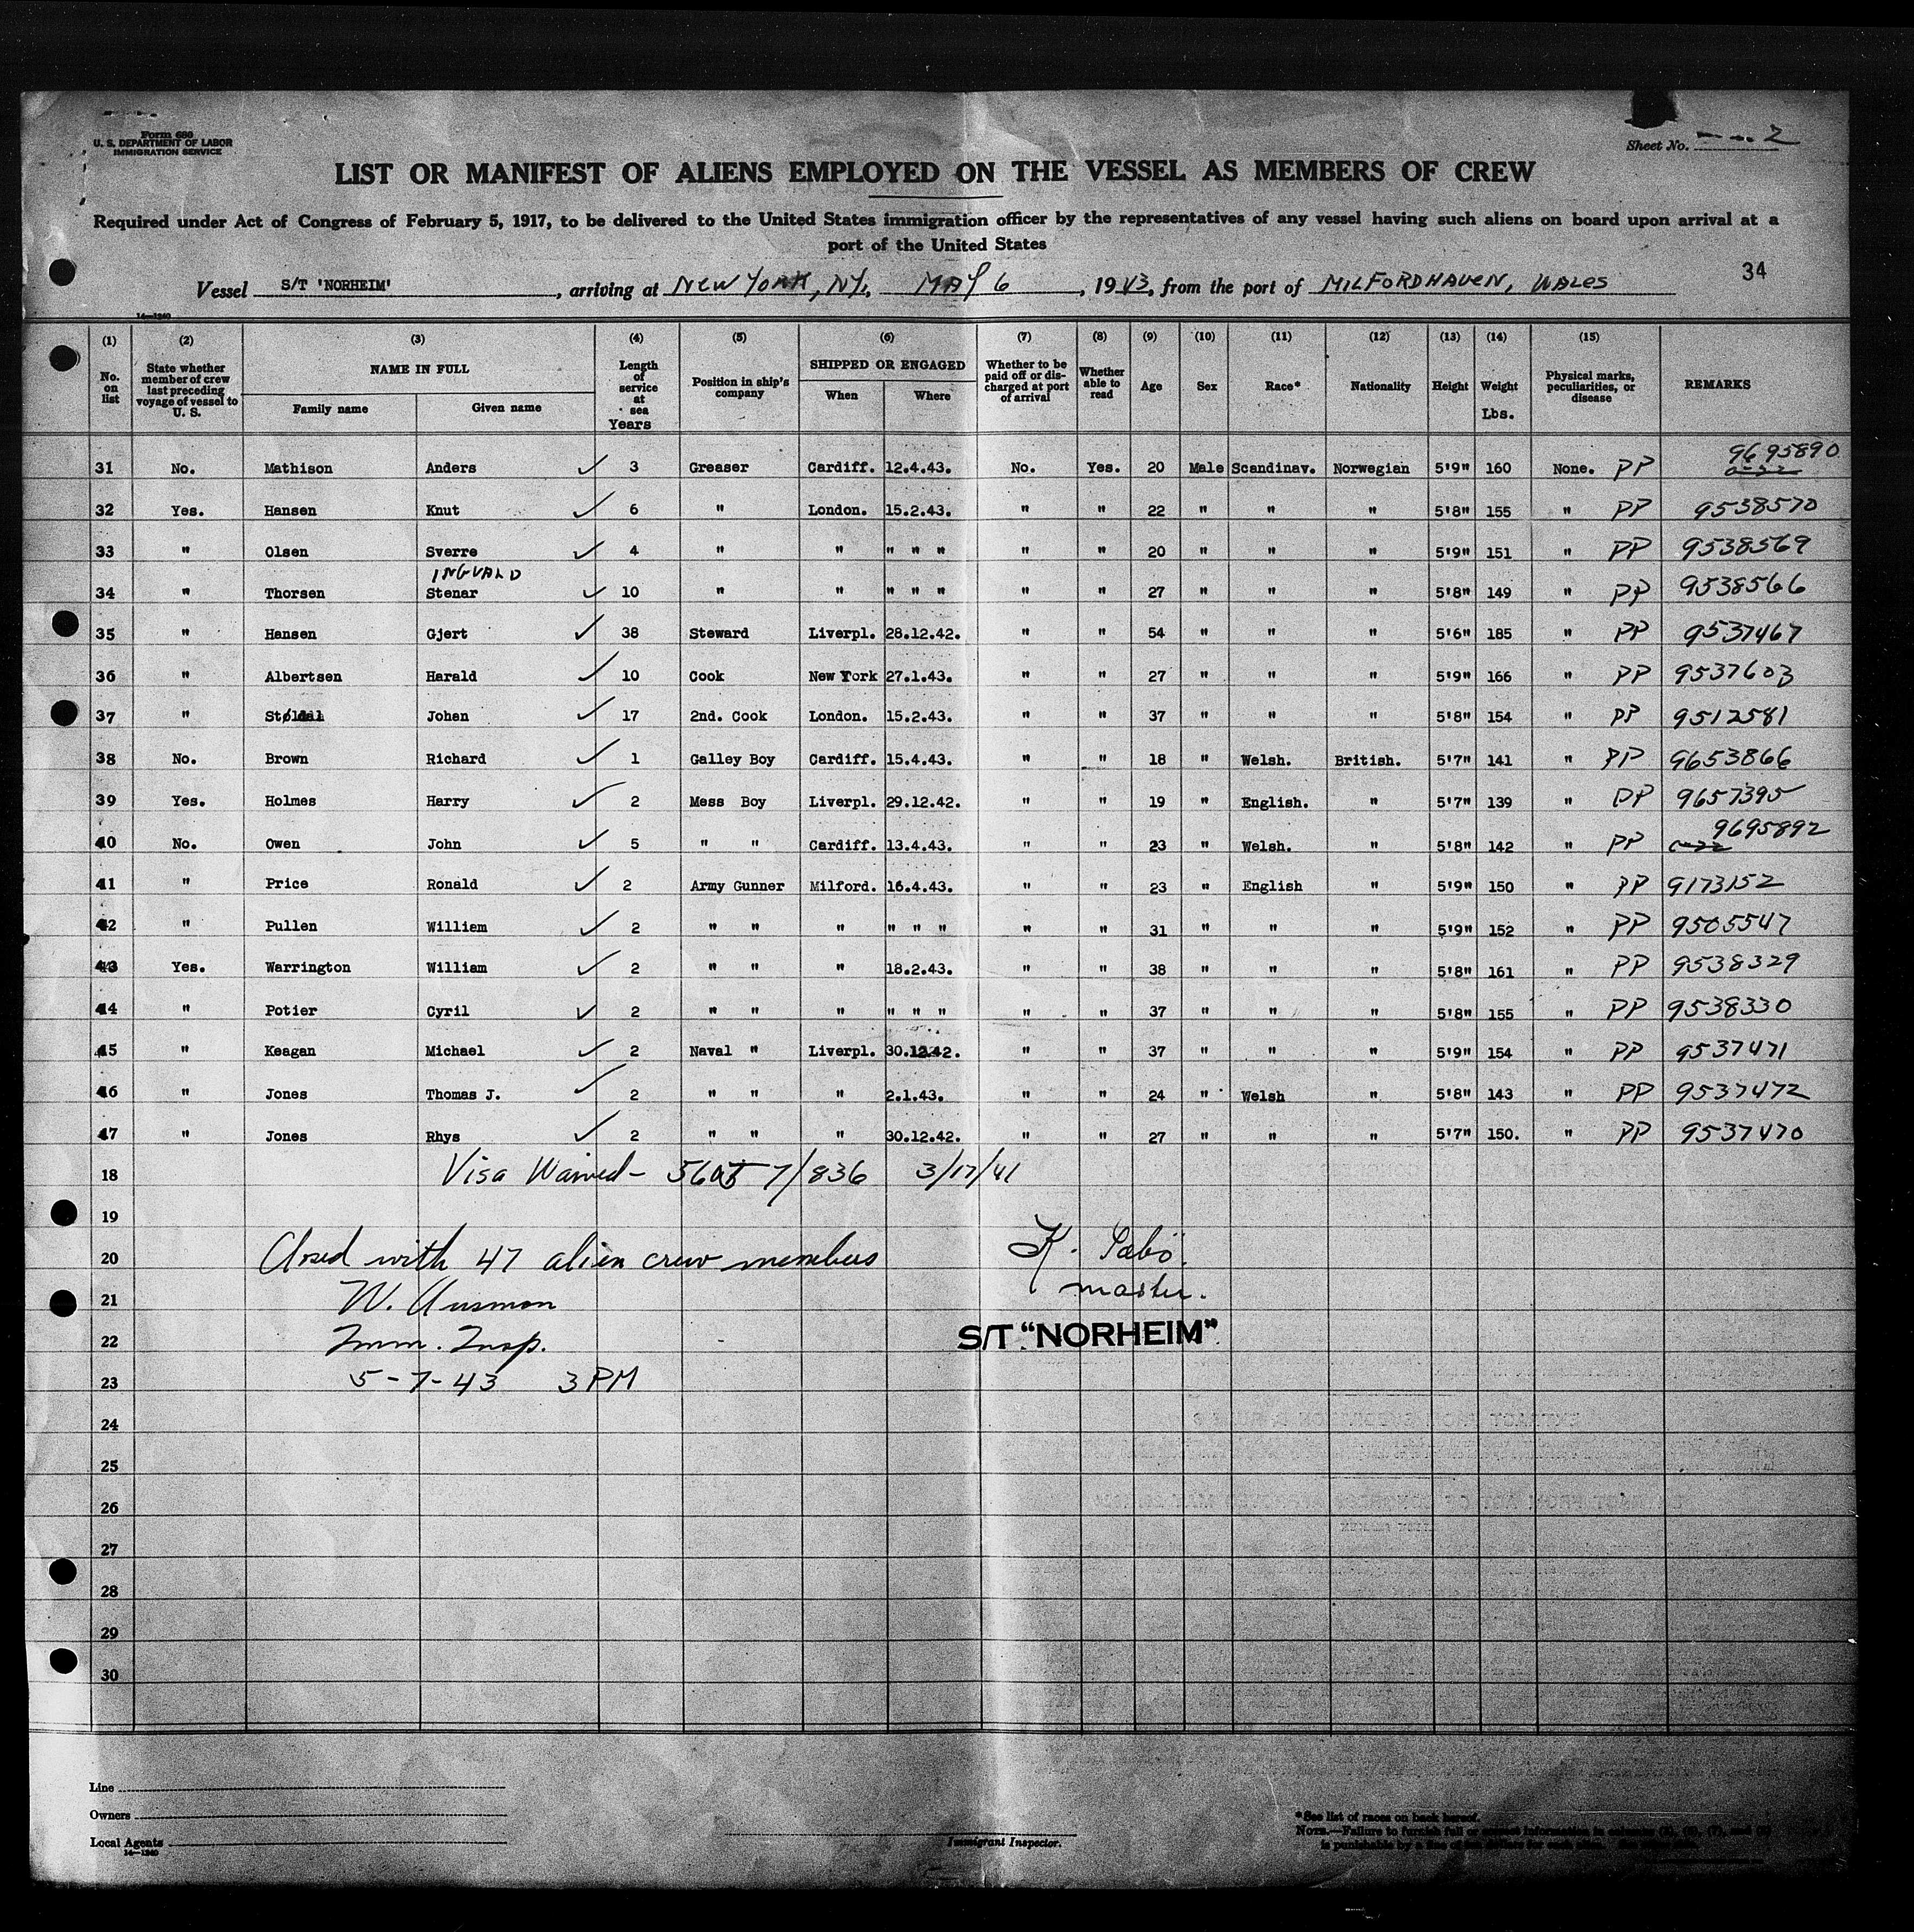 Form 680
U. S. DEPARTMENT OF LABOR
IMMIGRATION SERVICE
Sheet No. 2
LIST OR MANIFEST OF ALIENS EMPLOYED ON THE VESSEL AS MEMBERS OF CREW
Required under Act of Congress of February 5, 1917, to be delivered to the United States immigration officer by the representatives of any vessel having such aliens on board upon arrival at a
port of the United States
34
Vessel S/T 'NORHEIM', arriving at NEW YORK, NY., MAY 6, 1943, from the port of MILFORDHAVEN, WALES
14—1240
(1) (2) (3) (4) (5) (6) (7) (8) (9) (10) (11) (12) (13) (14) (15)
No. on list | State whether member of crew last preceding voyage of vessel to U. S. | NAME IN FULL | Family name | Given name | Length of service at sea Years | Position in ship's company | SHIPPED OR ENGAGED | When | Where | Whether to be paid off or discharged at port of arrival | Whether able to read | Age | Sex | Race* | Nationality | Height | Weight Lbs. | Physical marks, peculiarities, or disease | REMARKS
31 No. Mathison Anders ✓ 3 Greaser Cardiff. 12.4.43. No. Yes. 20 Male Scandinav. Norwegian 5'9" 160 None. PP 9695890
32 Yes. Hansen Knut ✓ 6 " London. 15.2.43. " " 22 " " " 5'8" 155 " PP 9538570
33 " Olsen Sverre ✓ 4 " " " " " " " 20 " " " 5'9" 151 " PP 9538569
INGVALD
34 " Thorsen Stenar ✓ 10 " " " " " " " 27 " " " 5'8" 149 " PP 9538566
35 " Hansen Gjert ✓ 38 Steward Liverpl. 28.12.42. " " 54 " " " 5'6" 185 " PP 9537467
36 " Albertsen Harald ✓ 10 Cook New York 27.1.43. " " 27 " " " 5'9" 166 " PP 9537603
37 " Johan ✓ 17 2nd. Cook London. 15.2.43. " " 37 " " " 5'8" 154 " PP 9512581
38 No. Brown Richard ✓ 1 Galley Boy Cardiff. 15.4.43. " " 18 " Welsh. British. 5'7" 141 " PP 9653866
39 Yes. Holmes Harry ✓ 2 Mess Boy Liverpl. 29.12.42. " " 19 " English. " 5'7" 139 " PP 9657395
40 No. Owen John ✓ 5 " " Cardiff. 13.4.43. " " 23 " Welsh. " 5'8" 142 " PP 9695892
41 " Price Ronald ✓ 2 Army Gunner Milford. 16.4.43. " " 23 " English " 5'9" 150 " PP 9173152
42 " Pullen William ✓ 2 " " " " " " " " 31 " " " 5'9" 152 " PP 9505547
43 Yes. Warrington William ✓ 2 " " " 18.2.43. " " 38 " " " 5'8" 161 " PP 9538329
44 " Potier Cyril ✓ 2 " " " " " " " " 37 " " " 5'8" 155 " PP 9538330
45 " Keagan Michael ✓ 2 Naval " Liverpl. 30.12.42. " " 37 " " " 5'9" 154 " PP 9537471
46 " Jones Thomas J. ✓ 2 " " " 2.1.43. " " 24 " Welsh " 5'8" 143 " PP 9537472
47 " Jones Rhys ✓ 2 " " " 30.12.42. " " 27 " " " 5'7" 150. " PP 9537470
18 Visa Waived - 7/836 3/17/41
19
20 Closed with 47 alien crew members K.
21 W. Ausmon master.
22 Imm. Insp. S/T "NORHEIM"
23 5-7-43 3 PM
24
25
26
27
28
29
30
Line
Owners
Local Agents
14—1240
Immigrant Inspector.
*See list of races on back hereof.
NOTE.—Failure to furnish full or
is punishable by a